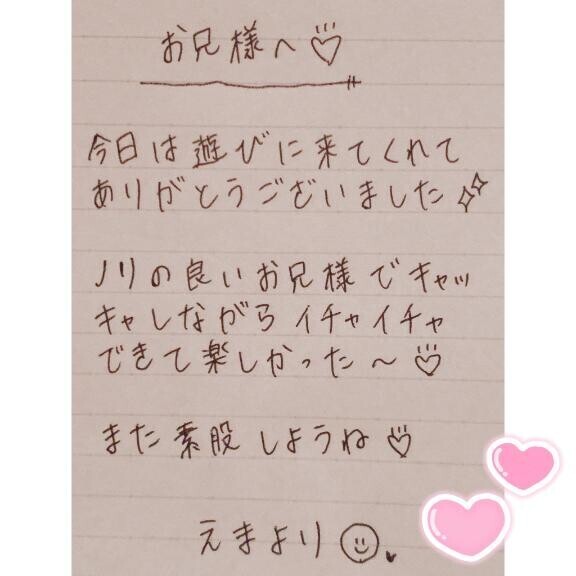 お兄様へ♡
今日は遊びに来てくれて
ありがとうございました
ノリの良いお兄様でキャッ
キャしながらイチャイチャ
できて楽しかった〜♡
また素股しようね♡
えまより